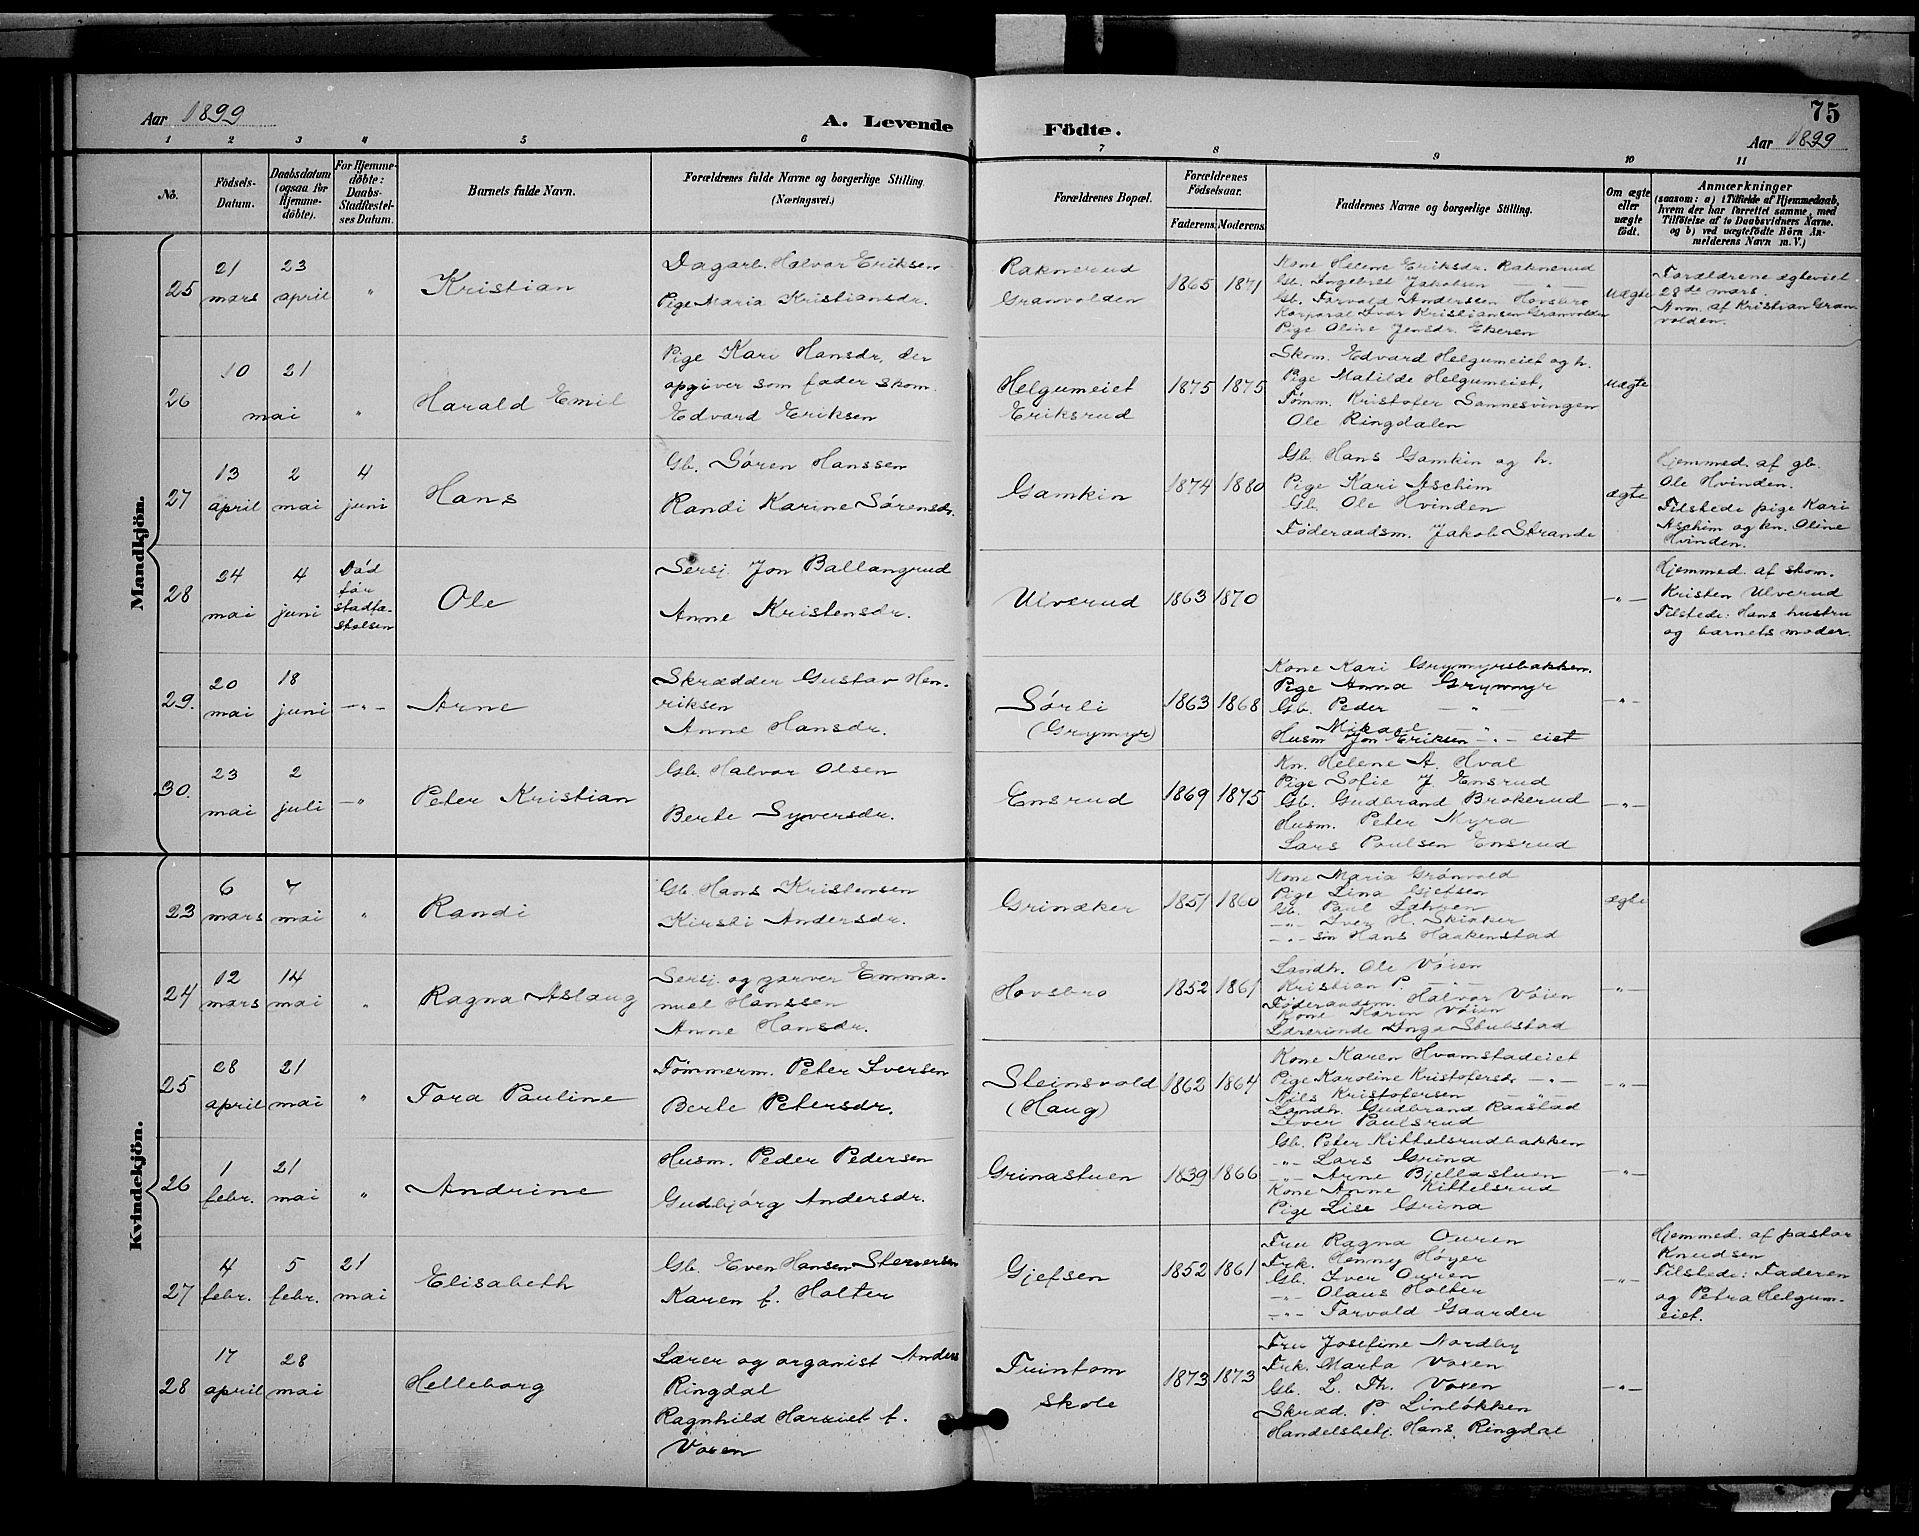 Aar 1899
A. Levende Födte.
75
Aar 1899
1 2 3 4 5 6 7 8 9 10 11
No.
Födsels-Datum.
Daabsdatum (ogsaa for Hjemmedøbte).
For Hjemmedøbte: Daabs-Stadfæstelses Datum.
Barnets fulde Navn.
Forældrenes fulde Navne og borgerlige Stilling. (Næringsvei.)
Forældrenes Bopæl.
Forældrenes Födselsaar.
Faderens. Moderens.
Faddernes Navne og borgerlige Stilling.
Om ægte eller uægte födt.
Anmærkninger
(saasom: a) i Tilfælde af Hjemmedaab, hvem der har forrettet samme, med Tilföielse af to Daabsvidners Navne. og b) ved uægtefödte Börn Anmelderens Navn m. V.)
Mandkjön.
25
21 mars
23 april
"
Kristian
Dagarb. Halvor Eriksen
Pige Maria Kristiansdr.
Raknerud
Granvolden
1865 1871
Kone Helene Eriksdr. Raknerud
Gb. Ingebret Jakobsen — " —
Gb. Torvald Andersen Hovsbro
Korporal Ivar Kristiansen Granvolden
Pige Oline Jensdr. Ekeren
uægte
Forældrene ægteviet
28de mars.
Anm. af Kristian Gran-
volden.
26
10 21
mai
"
Harald Emil
Pige Kari Hansdr, der
opgiver som fader skom.
Edvard Eriksen
Helgumeiet
Eriksrud
1875 1875
Skom. Edvard Helgumeiet og h.
Pige Matilde Helgumeiet,
Tømm. Kristofer Sannesvingen
Ole Ringdalen
uægte
27
13 april
2 mai
4 juni
Hans
Gb. Søren Hanssen
Randi Karine Sørensdr.
Gamkin
1874 1880
Gb. Hans Gamkin og h.
Pige Kari Aschim
Gb. Ole Hvinden
Føderaadsm. Jakob Strande
ægte
Hjemmed. af gb.
Ole Hvinden.
Tilstede pige Kari
Aschim og kn. Oline
Hvinden.
28
24 mai
4 juni
Død før stadfæ-
stelsen
Ole
Sersj. Jon Ballangrud
Anne Kristensdr.
Ulverud
1863 1870
— " —
Hjemmed. af skom.
Kristen Ulverud
Tilstede: Hans hustru
og barnets moder.
29.
20 mai
18 juni
— " —
Arne
Skrædder Gustav Hen-
riksen
Anne Hansdr.
Sørli
(Grymyr)
1863 1868
Kone Kari Grymyrsbakken
Pige Anna Grymyr
Gb. Peder — " —
Mikael — " —
Husm Jon Eriksen — " — eiet
— " —
30.
23 mai
2 juli
— " —
Peter Kristian
Gb. Halvor Olsen
Berte Syversdr.
Ensrud
1869 1875
Kn. Helene A. Hval
Pige Sofie J. Ensrud
Gb. Gudbrand Brokerud
Husm. Peter Myra
Lars Paulsen Ensrud
— " —
Kvindekjön.
23
6 mars
7 mai
"
Randi
Gb. Hans Kristensen
Kirsti Andersdr.
Grinaker
1851 1860
Kone Maria Grønvold
Pige Lina Gjefsen
Gb. Paul
— " — Iver H. Skiaker
— " — søn Hans Haakenstad
ægte
24
12 mars
14 mai
"
Ragna Aslaug
Sersj. og garver Emma-
nuel Hanssen
Anne Hansdr.
Hovsbro
1852 1861
Landh. Ole Vøien
Kristian P. — " —
Føderaadsm. Halvor Vøien
Kone Karen Vøien
Lærerinde Inga Stubstad
— " —
25
28 april
21 mai
"
Tora Pauline
Tømmerm. Peter Iversen
Berte Petersdr.
Steinsvold
(Haug)
1862 1864
Kone Karen Hvamstadeiet
Pige Karoline Kristofersdr — " —
Nils Kristofersen — " —
Landh. Gudbrand Raastad
Iver Paulsrud
— " —
26
1 febr.
21 mai
"
Andrine
Husm. Peder Pedersen
Gudbjörg Andersdr.
Grinastuen
1839 1866
Gb. Peter Kittelsrudbakken
— " — Lars Grina
— " — Arne Bjellastuen
Kone Anne Kittelsrud
Pige Lise Grina
— " —
27
4 febr.
5 febr.
21 mai
Elisabeth
Gb. Even Hansen
Karen f. Holter
Gjefsen
1852 1861
Fru Ragna Ouren
Frk. Henny Høyer
Gb. Iver Ouren
— " — Olaus Holter
— " — Torvald Gaarder
— " —
Hjemmed. af pastor
Knudsen
Tilstede: Faderen
og Petra Helgum-
eiet.
28
17 april
28 mai
Helleborg
Lærer og organist Anders
Ringdal
Ragnhild Harriet f.
Voxen
Tuintom
skole
1873 1873
Fru Josefine Nordby
Frk. Marta Voxen
Gb. L. Th. Voxen
Skrædd. P Linløkken
Handelsbetj. Hans Ringdal
— " —